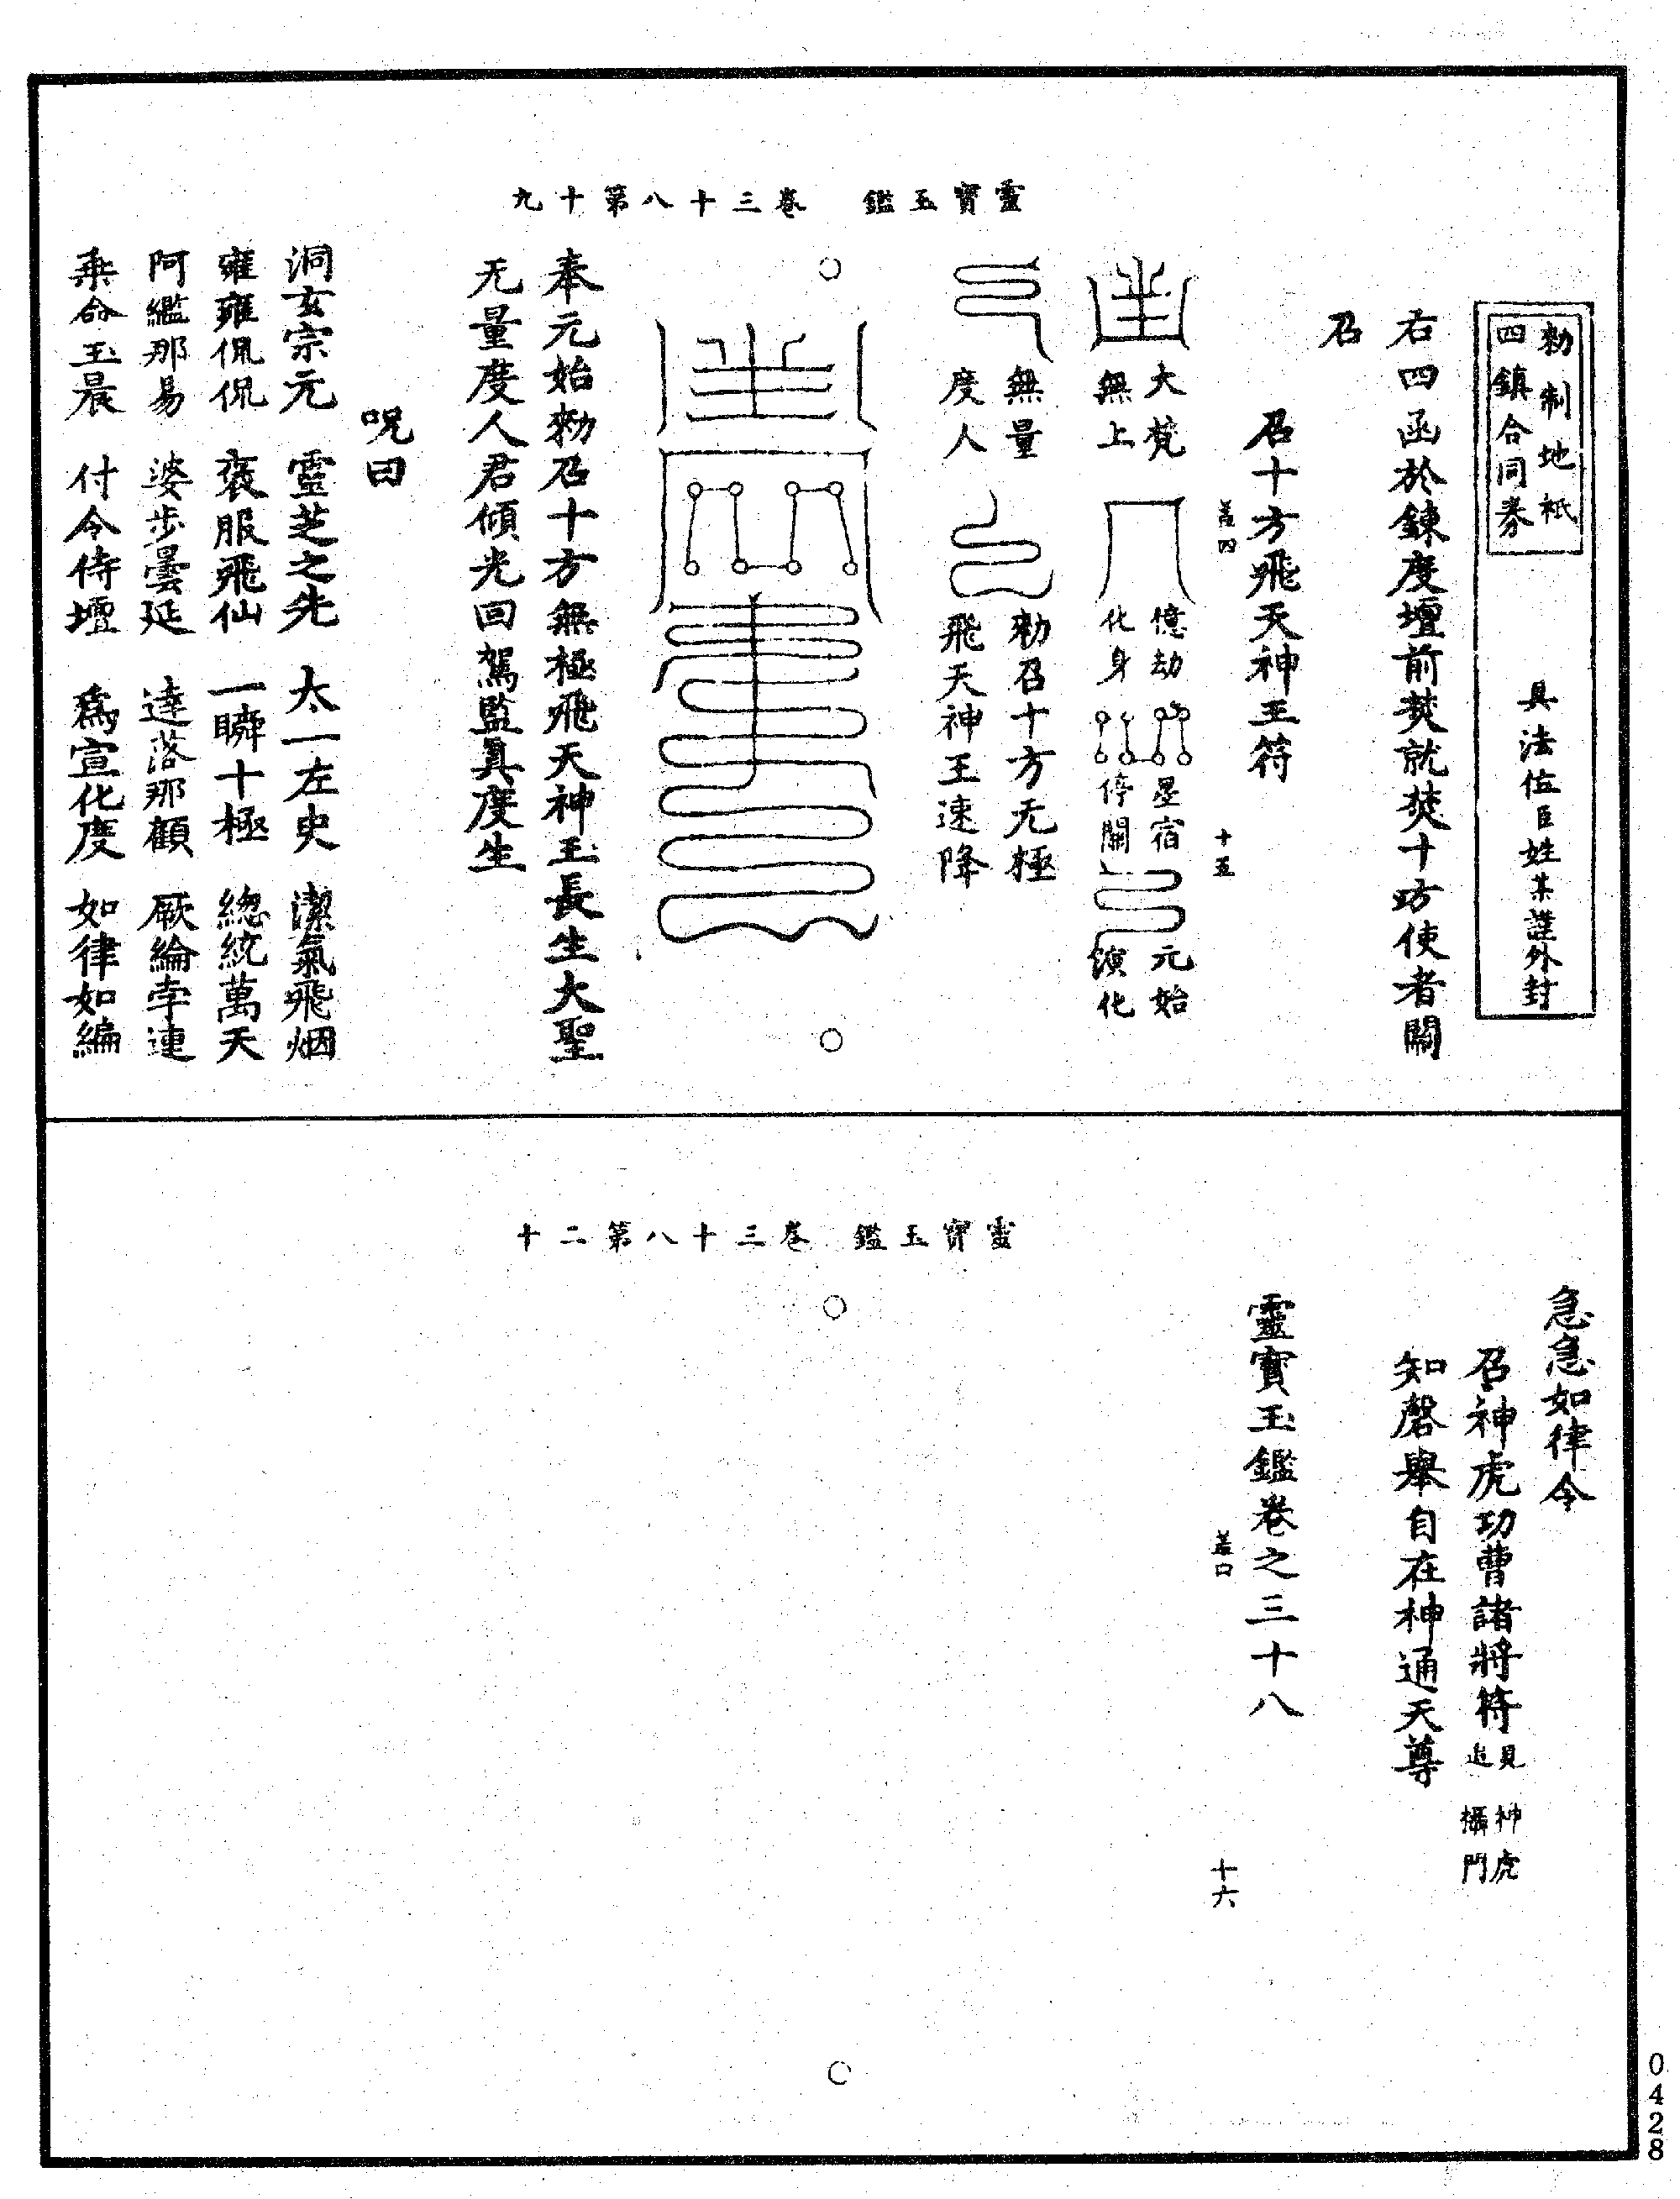 靈寶玉鑑 卷三十八第十九
勑制地祇
四鎮合同券
具法位臣姓某謹外封
右四函於鍊度壇前焚就焚十方使者關
召
召十方飛天神王符
蓋四 十五
大梵
無上
億劫
化身
星宿
停關
元始
演化
無量
度人
勑召十方无極
飛天神王速降
奉元始勑召十方無極飛天神王長生大聖
无量度人君傾光回駕監真度生
呪曰
洞玄宗元 靈芝之先 太一左史 潔氣飛烟
雍雍侃侃 衮服飛仙 一瞬十極 總統萬天
阿㠌那易 婆步曇延 達落那顧 厥綸孛連
乘命玉晨 付令侍壇 爲宣化度 如律如編
靈寶玉鑑 卷三十八第二十
急急如律令
召神虎功曹諸將符 見神虎
追攝門
知磬舉自在神通天尊
靈寶玉鑑卷之三十八
十六
0428